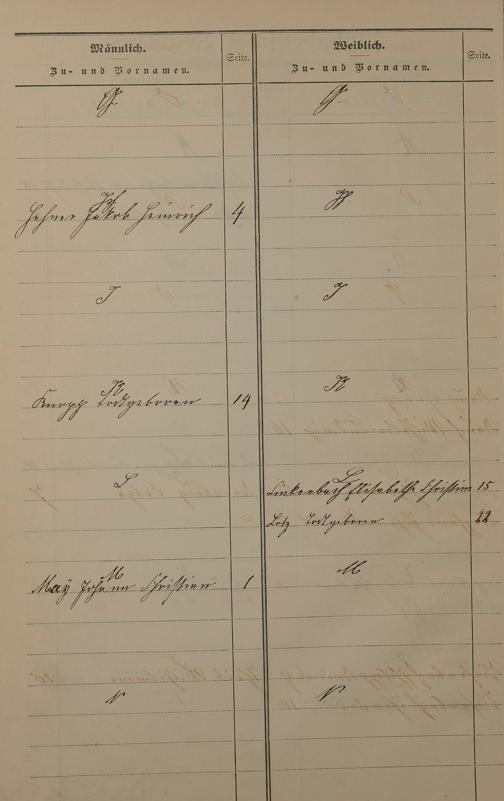 Männlich.
Zu- und Vornamen.
Seite.
Weiblich.
Zu- und Vornamen.
Seite.
G.
G.
H
H
Hehner Jakob Heinrich 4
I
I
K
K
Knopp Todtgeboren 14
L
L
Linkenbach Elisabethe Christine 15
Lotz Todtgeboren 22
M
M
May Johann Christian 1
N
N